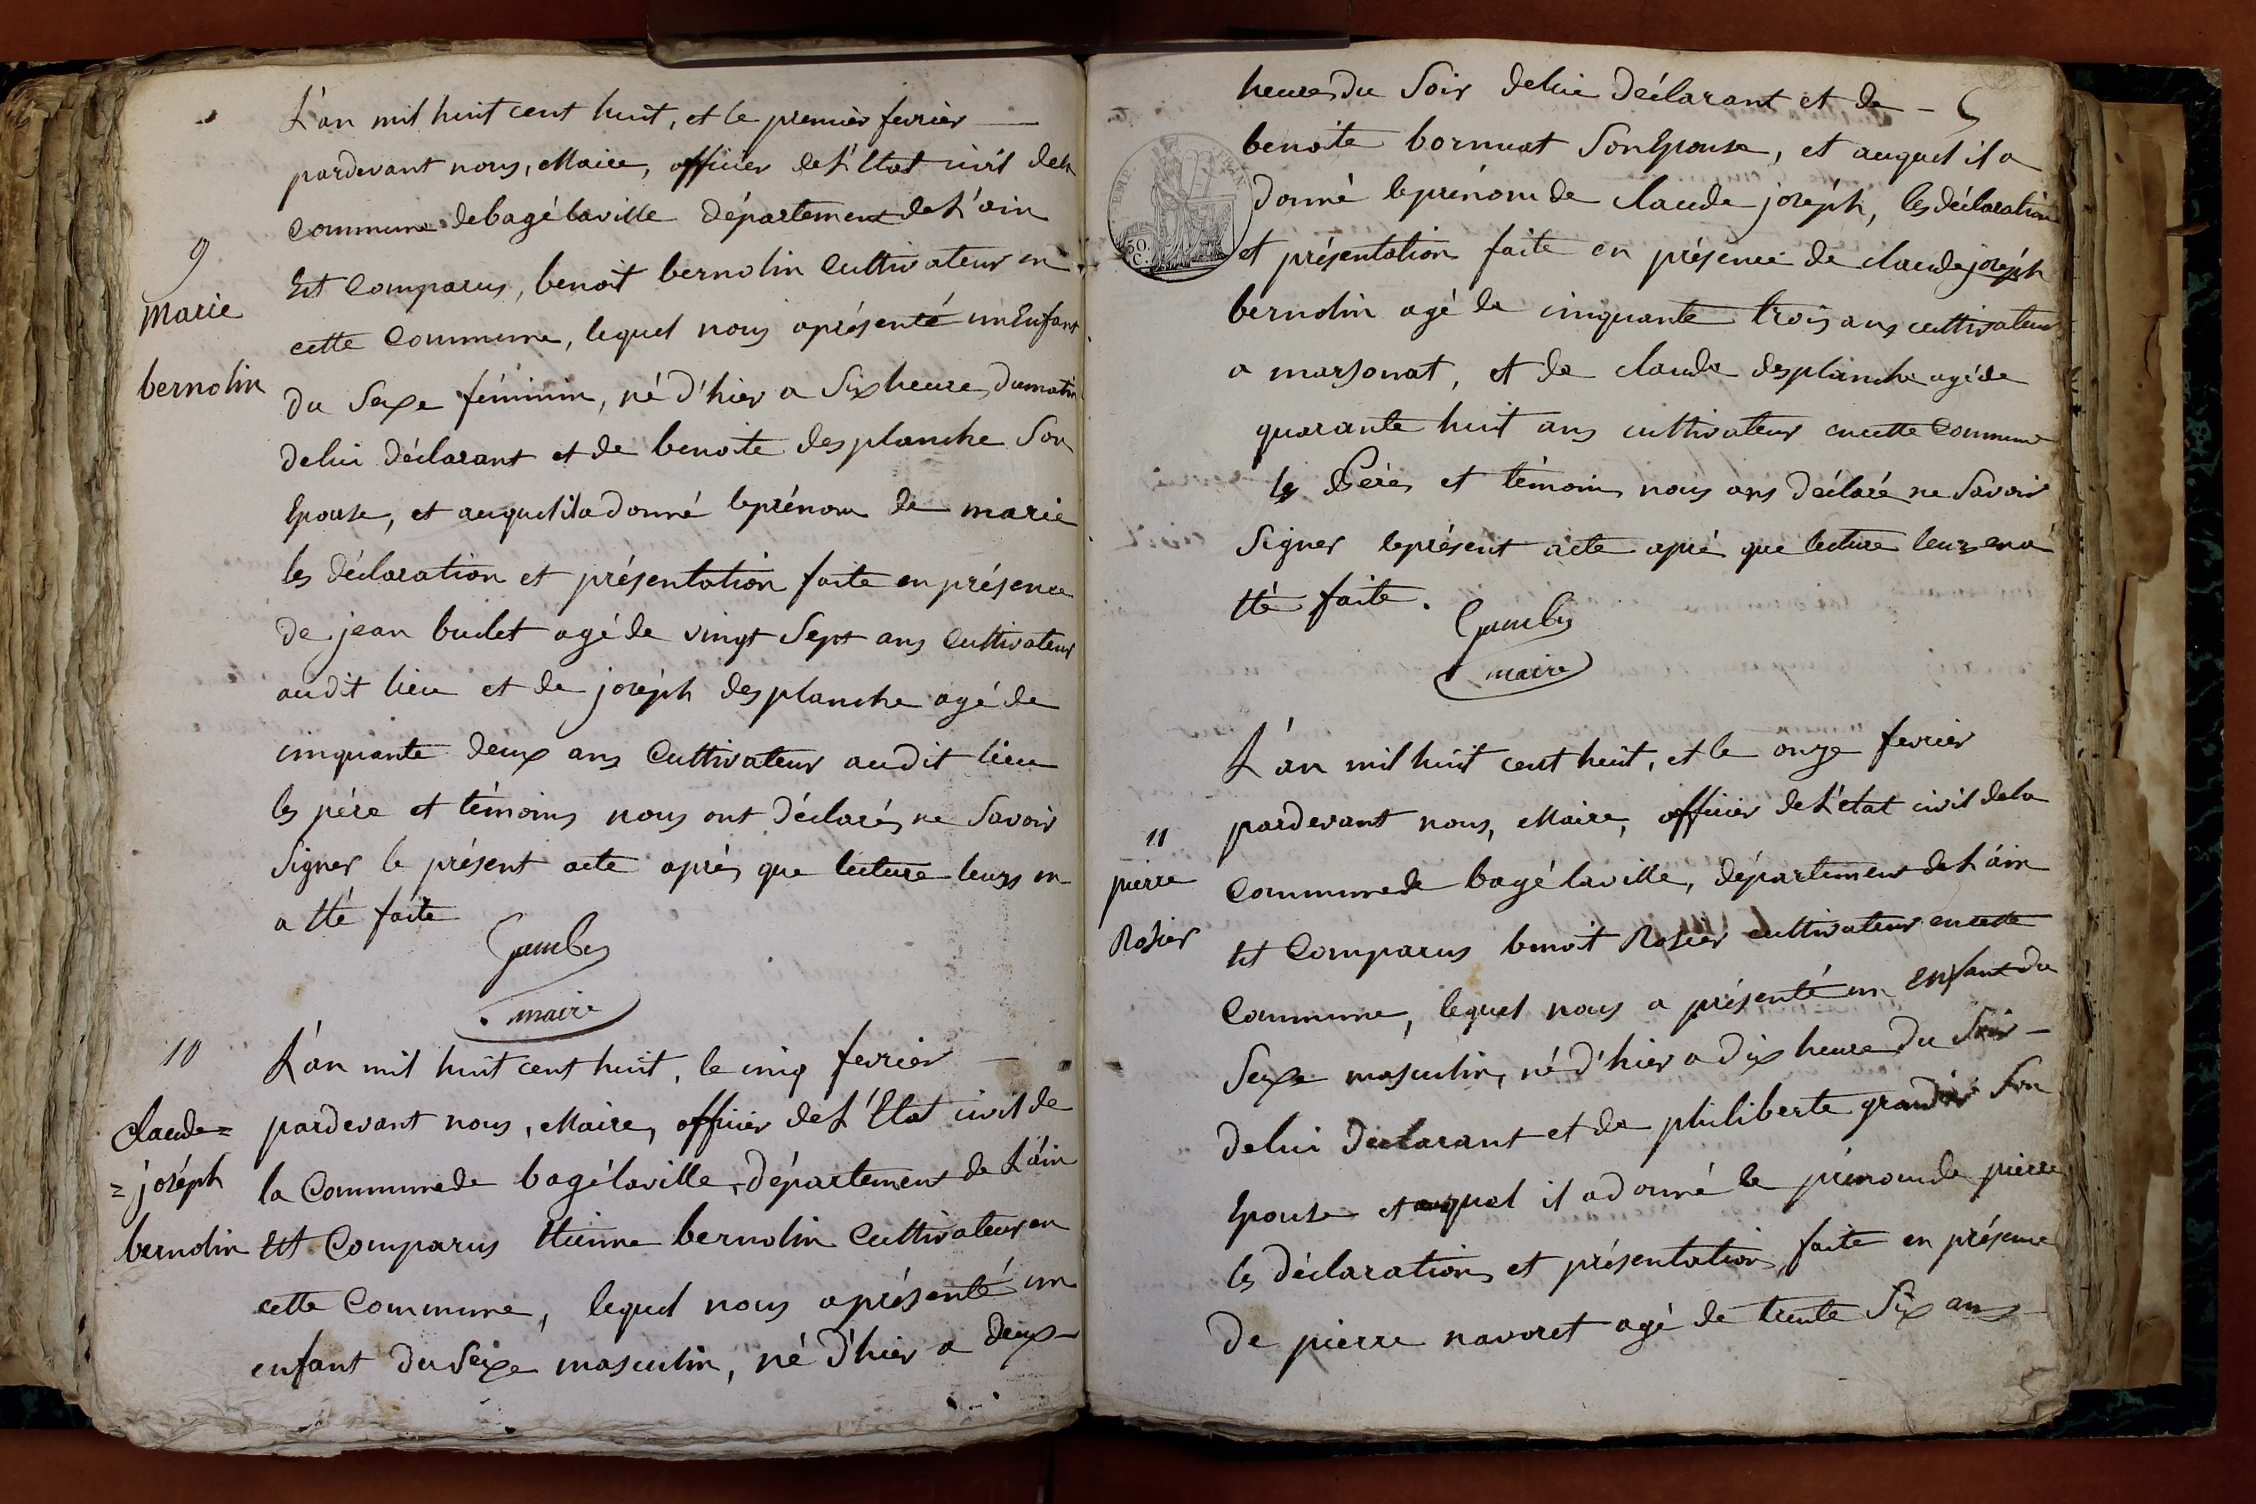 L'an mil huit cent huit, et le premier fevrier
pardevant nous, Maire, officier de L'Etat civil dela
commune debagé laville département de L'ain
Est Comparus, benoit bernolin Cultivateur en
9
cette Commune, lequel nous aprésenté un Enfant
marie
du Sexe féminin, né d'hier a Six heure, dumatin
bernolin
delui déclarant et de benoite desplanche Son
Epouse, et auquel ila donné leprénom de marie
les déclaration et présentation faite en présence
de jean budet agé de vingt Sept ans Cultivateur
audit lieu et de joséph desplanche agé de
cinquante deux ans Cultivateur audit lieu
les pére et témoins nous ont déclarés ne Savoir
Signer le présent acte aprés que lecture leurs en
a Eté faite
Gambi
maire
10
L'an mil huit cent huit, le cinq fevrier
Claude=
pardevant nous, Maire, officier de L'Etat civil de
=joséph
la Commune de bagélaville, département de L'ain
bernolin
Est Comparus Etienne bernolin Cultivateur en
cette Commune, lequel nous aprésenté un
enfant du Sexe masculin, né d'hier a deux
heures du Soir delui déclarant et de - 5
benoite bornuat Son Epouse, et auquel il a
donné leprénom de Claude joséph, les déclaration
et présentation faite en présence de claude joséph
50.
C.
bernolin agé de cinquante trois ans cultivateur
a marsonat, et de claude desplanche agé de
quarante huit ans cultivateur encette Commune
les Péres et témoins nous ons déclaré ne Savoir
Signer leprésent acte apré que lecture leurs en a
Eté faite.
Gambi
maire
L'an mil huit cent huit, et le onze fevrier
11
pardevant nous, Maire, officier de L'etat civil dela
pierre
Commune de bagé laville, département de L'ain
Rosier
Est Comparus benoit Rosier cultivateur encette
Commune, lequel nous a présenté un enfant du
Sexe masculin, né d'hier a dix heure du Soir -
delui declarant et de philiberte Son
Epouse et auquel il adonné le prénom de pierre
les déclarations et présentation, faite en présence
de pierre navoret agé de trente Six ans